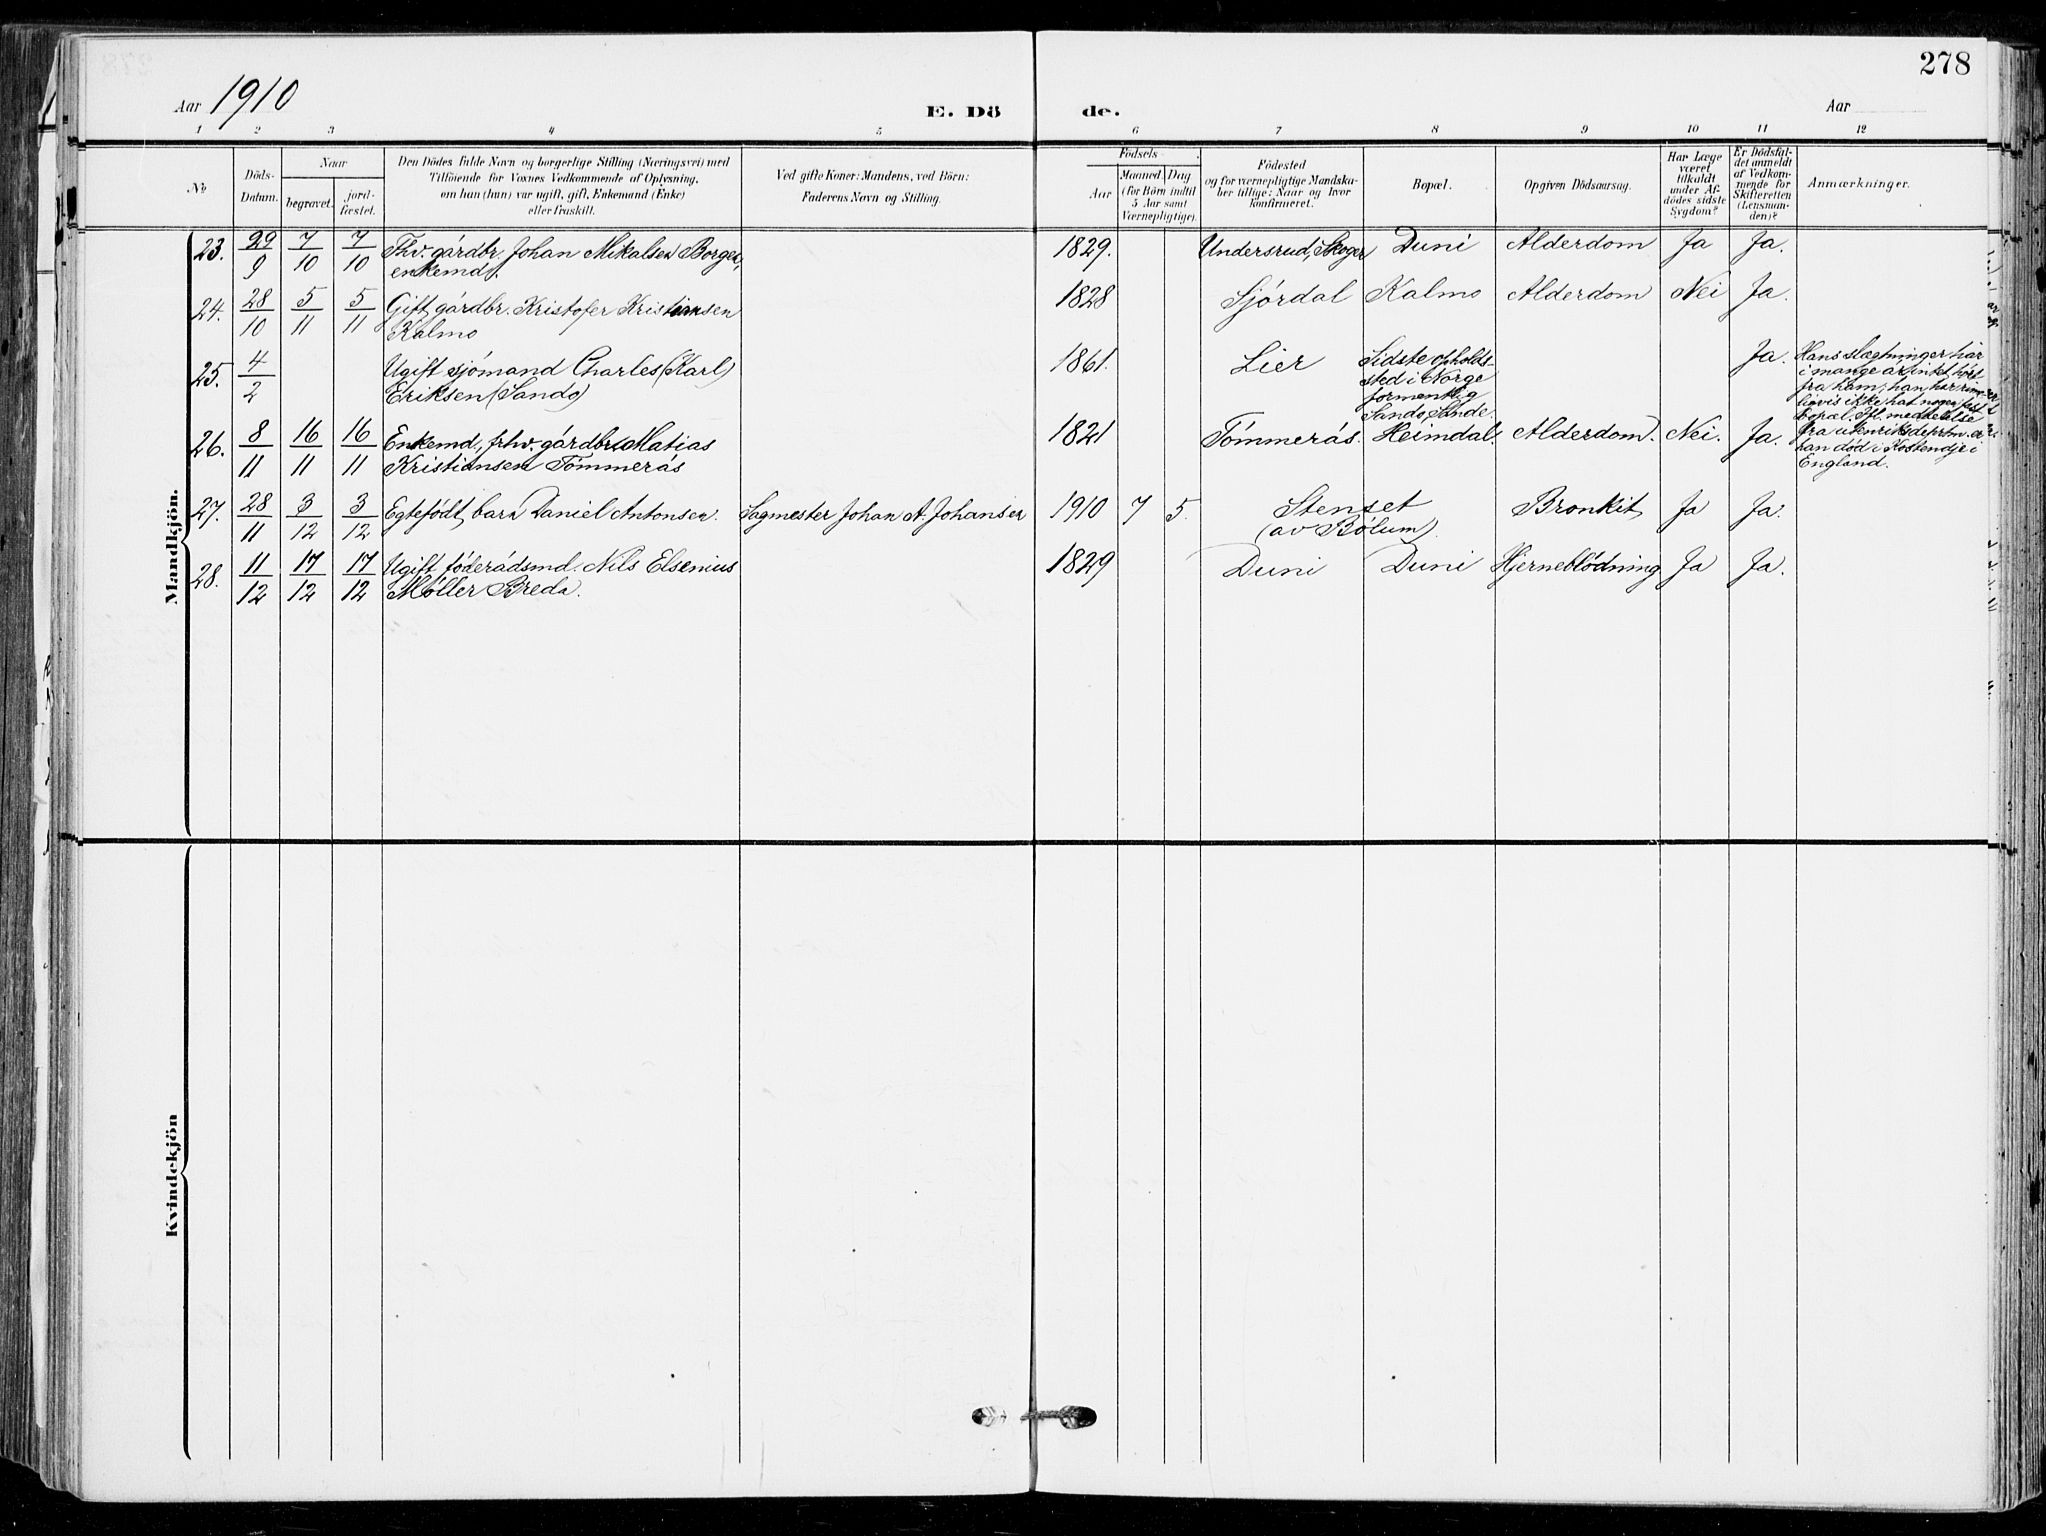 278
Aar 1910
E. Dö
de.
Aar
1 2 3 4 5 6 7 8 9 10 11 12
No
Döds-
Datum.
Naar
begravet.
jord-
fæstet.
Den Dödes fulde Navn og borgerlige Stilling (Næringsvei) med
Tilföiende for Voxnes Vedkommende af Oplysning,
om han (hun) var ugift, gift, Enkemand (Enke)
eller fraskilt.
Ved gifte Koner: Mandens, ved Börn:
Faderens Navn og Stilling.
Födsels-
Aar
Maaned
Dag
(for Börn indtil
5 Aar samt
Værnepligtige).
Födested
og for værnepligtige Mandska-
ber tillige: Naar og hvor
konfirmeret.
Bopæl.
Opgiven Dödsaarsag.
Har Læge
været
tilkaldt
under Af-
dödes sidste
Sygdom?
Er Dödsfal-
det anmeldt
af Vedkom-
mende for
Skifteretten
(Lensman-
den)?
Anmærkninger.
Mandkjön.
23. 29/9 7/10 7/10 Fhv. gårdbr. Johan Mikalsen Borger, 1829. Undersrud, Skoger Duni Alderdom Ja Ja.
enkemd.
24. 28/10 5/11 5/11 Gift gårdbr. Kristofer Kristiansen 1828 Sjórdal Kalmo Alderdom Nei Ja.
Kalmo
25. 4/2 Ugift sjómand Charles (Karl) 1861. Lier Sidste opholds- Ja.
Eriksen (Sando)
sted i Norge
formentlig
Sando, Sande.
Hans slægtninger har
i mange år intet hørt
fra ham; han har
ikke hat nogen fast
bopæl. Ifl. meddelelse
fra utenriksdeprtm. er
han död i Kostendje i
England.
26. 8/11 16/11 16/11 Enkemd., frhv. gårdbr. Matias 1821 Tömmerás. Heimdal. Alderdom. Nei. Ja.
Kristiansen Tömmerås
27. 28/11 3/12 3/12 Egtefödt barn Daniel Antonsen. Sagmester Johan A. Johansen 1910 7 5. Stenset Bronkit Ja Ja.
(av Bölum).
28. 11/12 17/12 17/12 Ugift föderådsmd. Nils Elsenius 1829 Duni Duni Hjerneblödning Ja Ja.
Möller Breda.
Kvindekjön